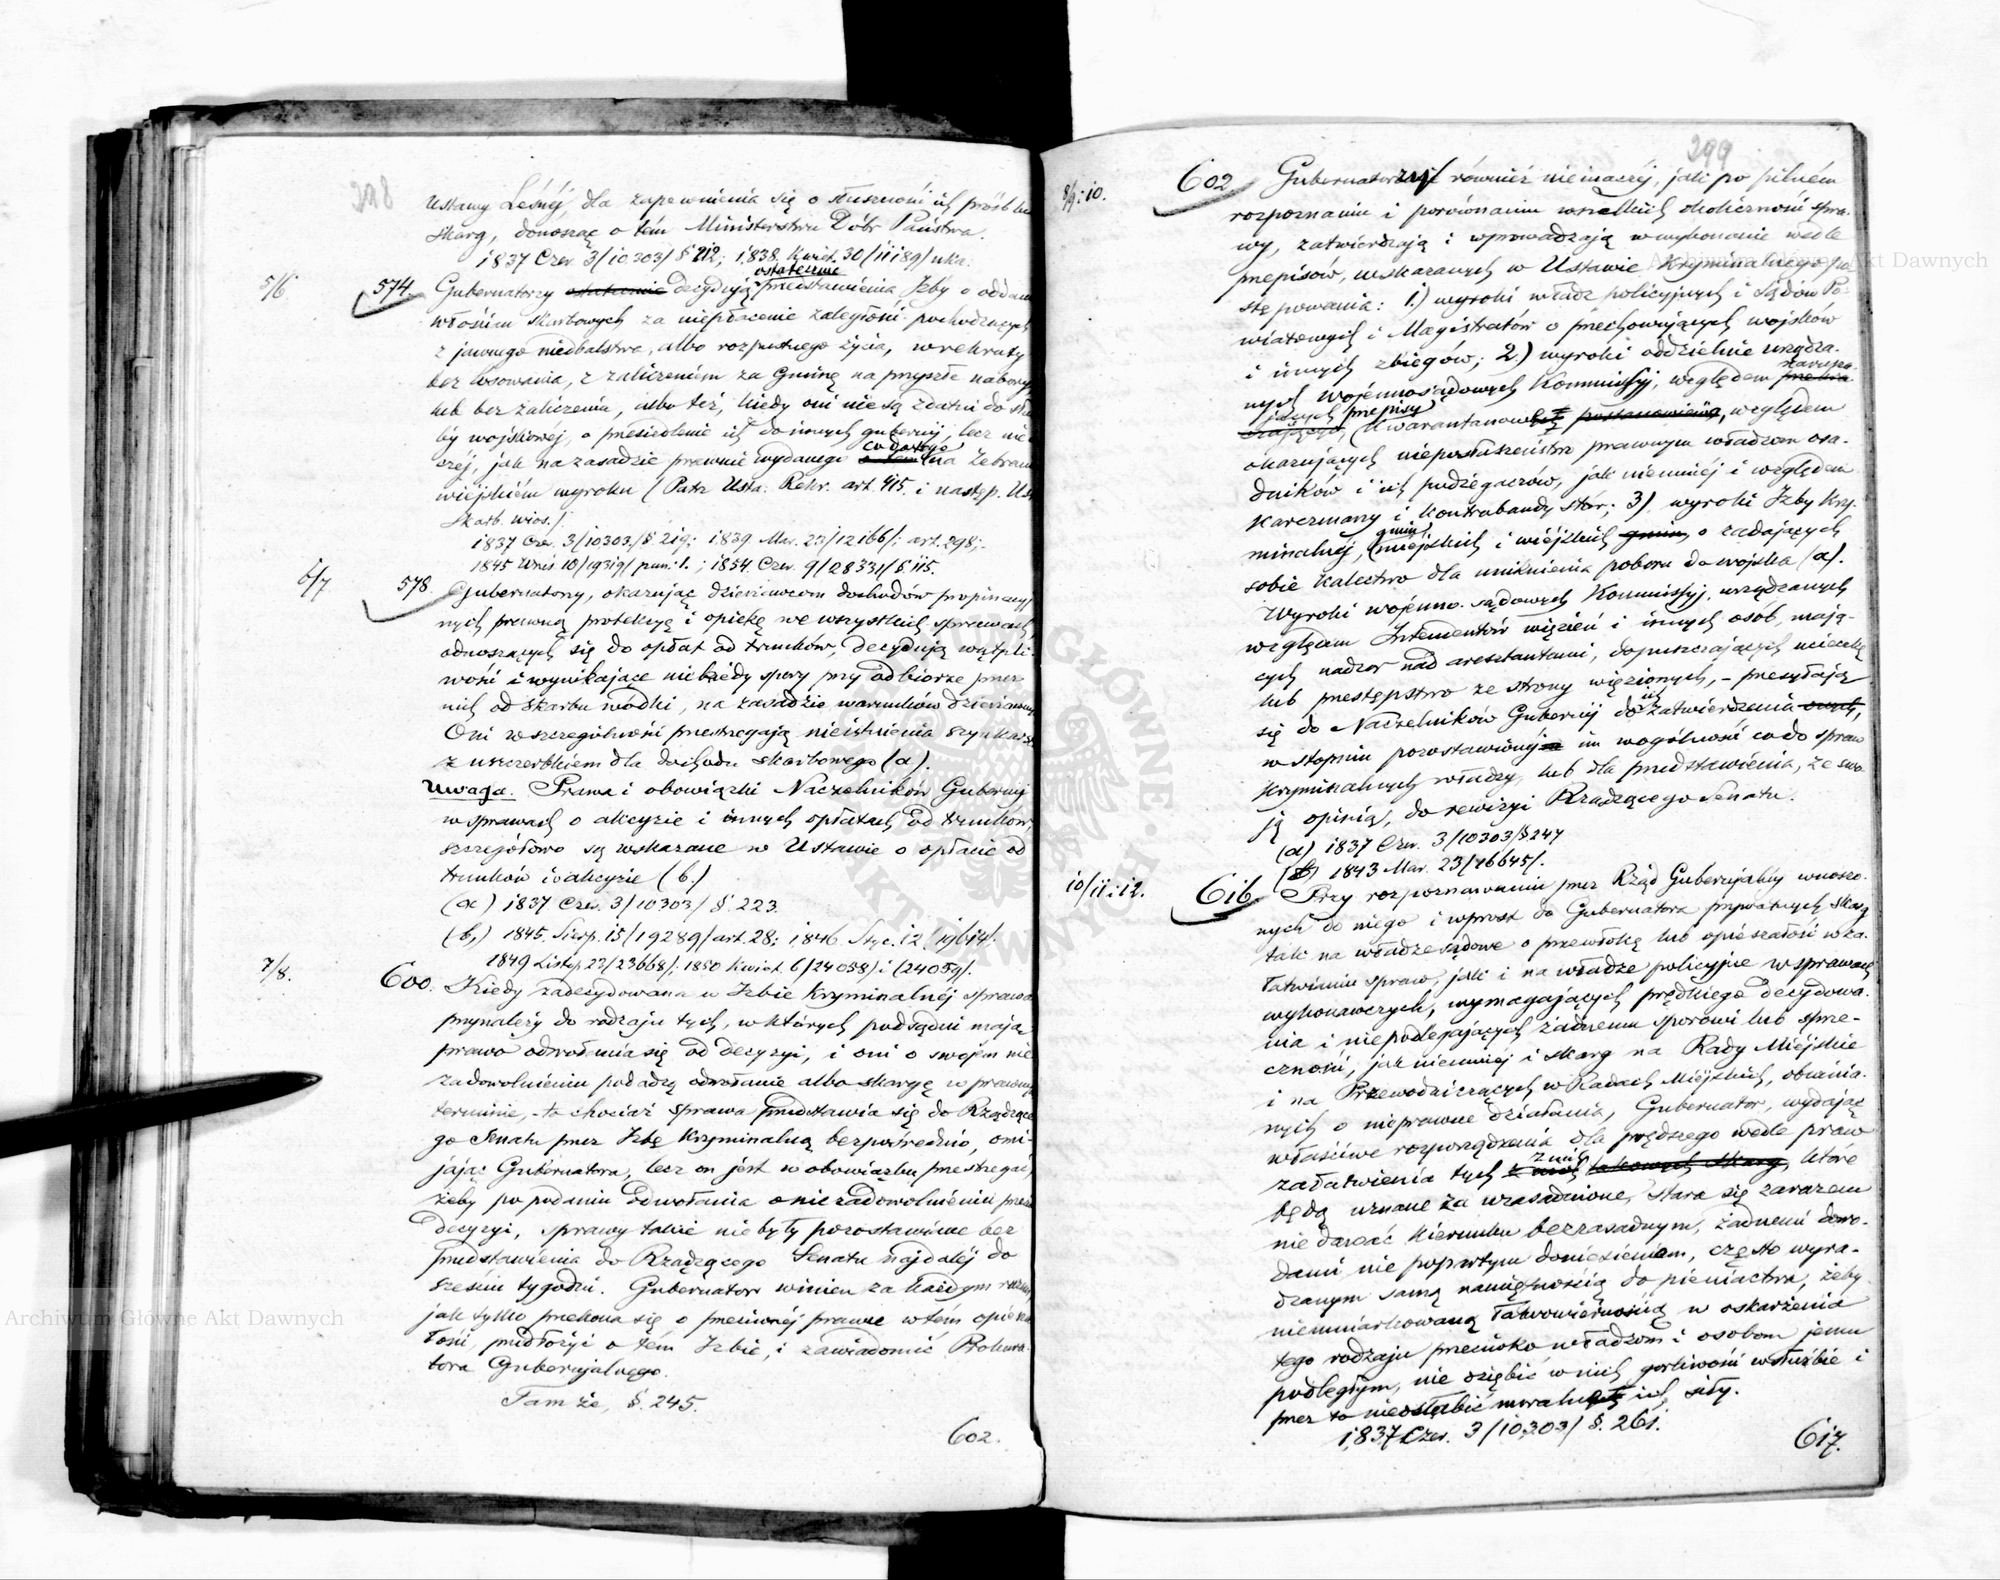 298
Ustawy Leśnéj, dla zapewnienia się o słuszności ich próśb lub
skarg, donosząc o tém Ministerstwu Dóbr Państwa.
1837 Czer. 3/10303/ § 212; 1838 Kwiet. 30/11189/ uka.
5/6
ostatecznie
574. Gubernatorzy ostatecznie decydują przedstawienia Izby o oddaniu
włościan skarbowych za niepłacenie zaległości pochodzących
z jawnego niedbalstwa, albo rozpustnego życia, w rekruty
bez losowania, z zaliczeniem za Gminę na przyszłe nabory
lub bez zaliczenia, albo téż, kiedy oni nie są zdatni do słu-
by wojskowéj, o przesiedlenie ich do innych gubernij, lecz nie
co do tego
czéj, jak na zasadzie prawnie wydanego o tém na Zebraniu
wiejskiém wyroku (Patz Usta. Rekr. art. 415. i następ. Ust.
Skarb. włos.)
1837 Czer. 3/10303/ § 219; 1839 Mar. 23/12166/; art. 298;
1845 Wrześ. 10/19319/ pun. 1.; 1854. Czer. 9/28331/ § 115.
6/7
578. Gubernatorzy, okazując dzierżawcom dochodów propinacyj-
nych prawną protekcyę i opiekę we wszystkich sprawach,
odnoszących się do opłat od trunków, decydują wątpli-
wości i wynikające niekiedy spory przy odbiorze przez
nich od skarbu wódki, na zasadzie warunków dzierżawnych
Oni w szczególności przestrzegają nieistnienia szynkarst
z uszczerbkiem dla dochodu skarbowego (a).
Uwaga. Prawa i obowiązki Naczelników Gubernij
w sprawach o akcyzie i innych opłatach od trunków,
szczegółowo są wskazane w Ustawie o opłacie od
trunków i o akcyzie (b.)
(a) 1837 Czer. 3/10303/ §. 223.
(b.) 1845. Sierp. 15/19289/ art. 28; 1846. Stycz. 12/19614/.
1849 Listop. 23/23668/; 1850 Kwiet. 6/24058/ i /24059/.
7/8.
600. Kiedy zadecydowana w Izbie Kryminalnéj sprawa
przynależy do rodzaju tych, w których podsądni mają
prawo odwołania się od decyzyi, i oni o swojém nie
zadowolnieniu podadzą odwołanie albo skargę w prawnym
terminie, to chociaż sprawa przedstawia się do Rządzące
go Senatu przez Izbę Kryminalną bezpośrednio, omi-
jając Gubernatora, lecz on jest w obowiązku przestrzegać,
żeby po podaniu odwołania o niezadowolnieniu przez
decyzyi, sprawy takie nie były pozostawione bez
przedstawienia do Rządzącego Senatu najdaléj do
sześciu tygodni. Gubernator winien za każdym razem,
jak tylko przekona się o przeciwnéj prawu w tém opiesza
łości, przedłożyć o tém Izbie, i zawiadomić Prokura-
tora Gubernijalnego.
Tamże, §. 245.
602.
299
8/9:10.
602 Gubernatorzy również nie inaczéj, jak po pilném
rozpoznaniu i porównaniu wszelkich okoliczności spra-
wy, zatwierdzają i wprowadzają w wykonanie wedle
przepisów, wskazanych w Ustawie Kryminalnego po
stępowania: 1.) wyroki władz policyjnych i Sądów Po-
wiatowych i Magistratów o przechowujących wojskow
i innych zbiegów; 2.) wyroki oddzielnie urządza-
narusza-
nych wojennosądowych Kommissyj, względem
jących przepisy
Kwarantanowe postanowienia, względem
okazujących nieposłuszeństwo prawnym władzom osa-
dników i ich podżegaczów, jak niemniéj i względem
karczmarzy i kontrabandystów; 3) wyroki Izby Kry-
gmin
minalnéj, miejskich i wiéjskich gmin o zadających
sobie kalectwo dla uniknienia poboru do wojska (a).
Wyroki wojenno-sądowych Kommissyj, urządzanych
względem Intendentów więzień i innych osób, mają-
cych nadzor nad aresztantami, dopuszczających ucieczkę
lub przestępstwo ze strony więzionych, – przesyłają
ich
się do Naczelników Gubernij do zatwierdzenia
w stopniu pozostawionéj im wogólności co do spraw
kryminalnych władzy, lub dla przedstawienia, ze swo-
ją opinią, do rewizyi Rządzącego Senatu.
(a) 1837 Czer. 3/10303/ § 247
(b) 1843 Mar. 23/16645/.
10/11:12.
616. Przy rozpoznawaniu przez Rząd Gubernijalny wnoszo-
nych do niego i wprost do Gubernatora prywatnych skarg
tak na władze sądowe o przewłokę lub opieszałość w za-
łatwianiu spraw, jak i na władze policyjne w sprawach
wykonawczych, wymagających prędkiego decydowa-
nia i niepodlegających żadnemu sporowi lub sprze-
czności, jak niemniéj i skarg na Rady Miéjskie
i na Przewodniczących w Radach Miéjskich, obwinia-
nych o nieprawne działania, Gubernator, wydając
właściwe rozporządzenia dla prędszego wedle praw
z nich
załatwienia tych takowych skarg, które
będą uznane za uzasadnione, stara się zarazem
nie dawać kierunku bezzasadnym, żadnemi dowo-
dami nie popartym doniesieniom, często wyra-
dzanym samą namiętnością do pieniactwa, żeby
niemiarkowaną łatwowiernością w oskarżenia
tego rodzaju przeciwko władzom i osobom jemu
podległym, nie oziębić w nich gorliwości w służbie i
przez to nie osłabić moralnych ich siły.
1837 Czer. 3/10303/ §. 261.
617.
Archiwum Główne Akt Dawnych
Archiwum Główne Akt Dawnych